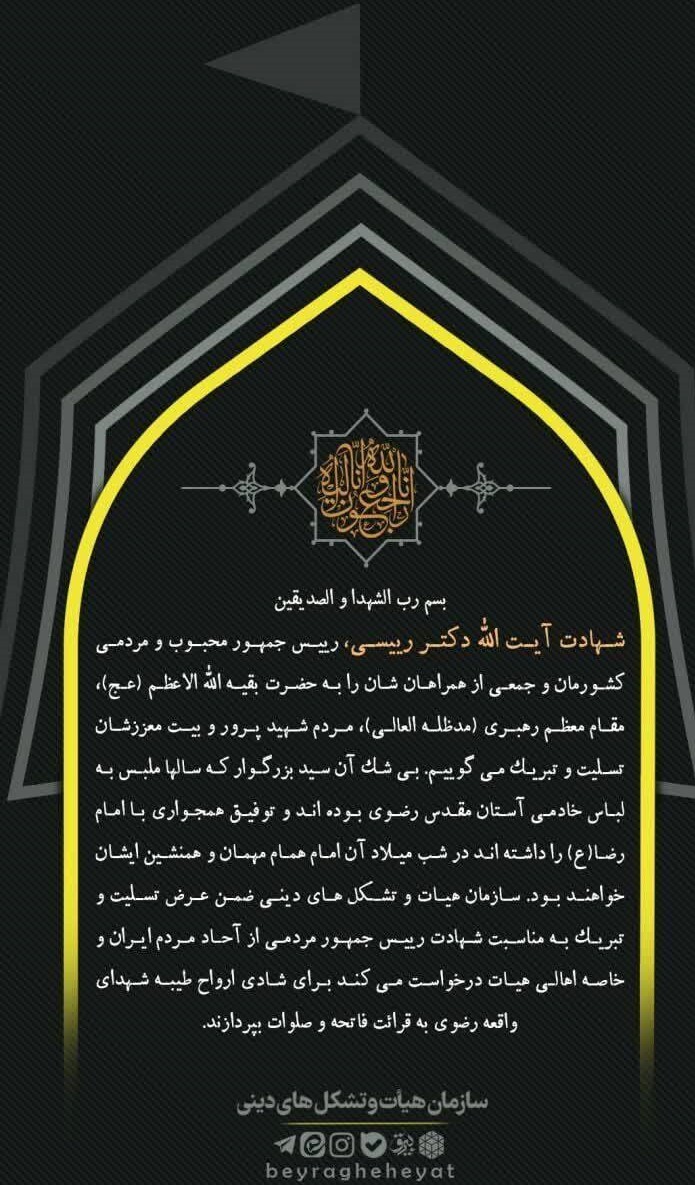 انا لله و انا الیه راجعون
بسم رب الشهدا و الصدیقین
شهادت آیت الله دکتر رییسی، رییس جمهور محبوب و مردمی
کشورمان و جمعی از همراهان شان را به حضرت بقیه الله الاعظم (عج)،
مقام معظم رهبری (مدظله العالی)، مردم شهید پرور و بیت معززشان
تسلیت و تبریک می گوییم. بی شک آن سید بزرگوار که سالها ملبس به
لباس خادمی آستان مقدس رضوی بوده اند و توفیق همجواری با امام
رضا(ع) را داشته اند در شب میلاد آن امام همام مهمان و همنشین ایشان
خواهند بود. سازمان هیات و تشکل های دینی ضمن عرض تسلیت و
تبریک به مناسبت شهادت رییس جمهور مردمی از آحاد مردم ایران و
خاصه اهالی هیات درخواست می کند برای شادی ارواح طیبه شهدای
واقعه رضوی به قرائت فاتحه و صلوات بپردازند.
سازمان هیأت و تشکل های دینی
beyragheheyat